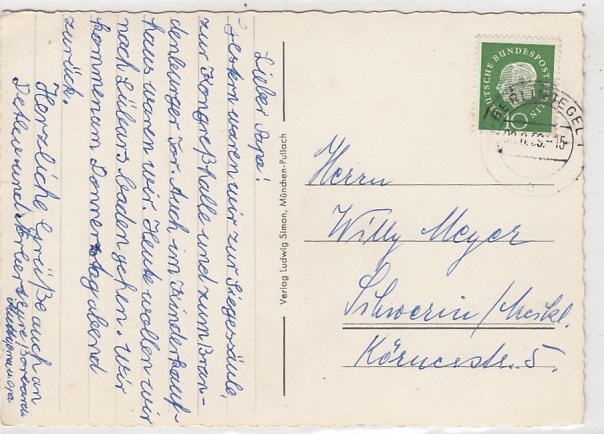 Lieber Papa!
Gestern waren wir zur Siegessäule,
zur Kongreßhalle und zum Bran-
denburger Tor. Auch im Kinderkauf-
haus waren wir. Heute wollen wir
nach Lübars baden gehen. Wir
kommen am Donnerstag abend
zurück.
Herzliche Grüße auch an
Detlev und
Verlag Ludwig Simon, München-Pullach
DEUTSCHE BUNDESPOST BERLIN
10
BERLIN-TEGEL 1
59.-15
Herrn
Willy Meyer
Schwerin/Meckl.
Körnerstr. 5.